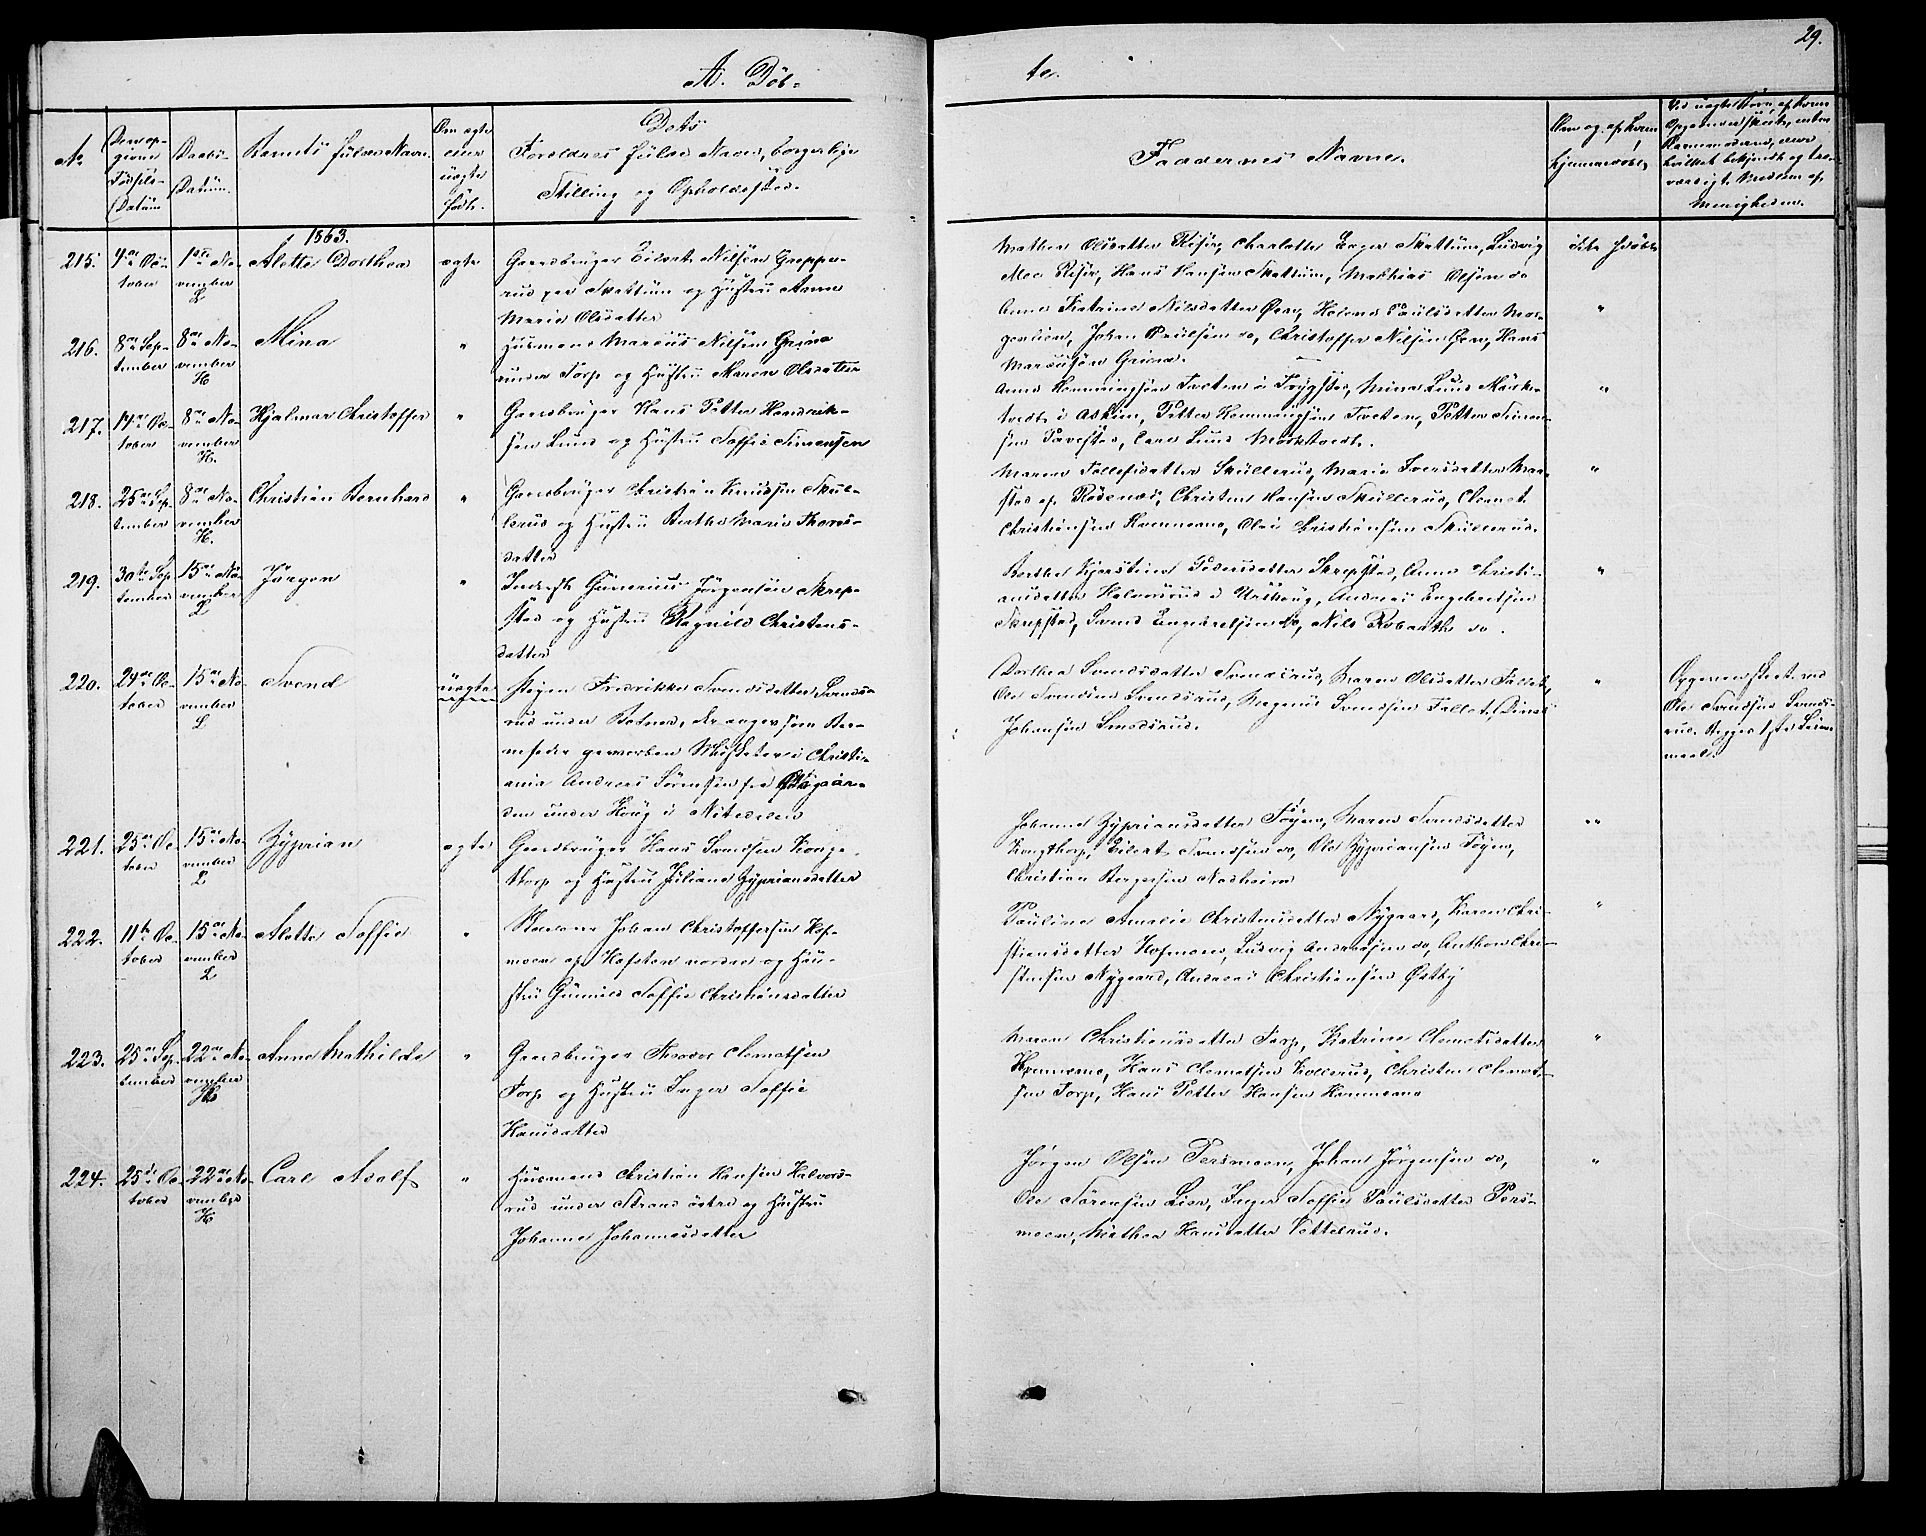 29.
A. Döb-
te.
No
Den op-
givne
Födsels-
Datum
Daabs-
Datum.
Barnets fulde Navn.
Om ægte
eller
uægte
födt.
Dets
Forældres fulde Navn, borgerlige
Stilling og Opholdssted.
Faddernes Navne.
Om og af hvem
hjemmedöbt,
Ved uægte Börn, af hvem
Opgivelsen skeet, enten
Barnemoderen, eller
hvilket bekjendt og tro-
værdigt Medlem af
Menigheden.
1863.
215. 4de Oc-
tober
1ste No-
vember
L
Alette Dorthea
ægte
Gaardbruger Eilert Nilsen Greppe-
rud paa Skattum og Hustru Anne
Marie Olsdatter
Mathea Olsdatter Risör, Charlotte Skattum, Ludvig
Moe Risör, Hans Hansen Skattum, Mathias Olsen do
ikke hjdöbt
216. 8de Sep-
tember
8de No-
vember
H
Mina
"
Husmand Marcus Nilsen Grime
under Torp og Hustru Maren Olsdatter
Anne Katrine Nilsdatter Helene Paulsdatter Mor-
genlien, Johan Paulsen do, Christoffer Nilsen Hans
Marcussen Grime.
"
217. 14de Oc-
tober
8de No-
vember
H.
Hjalmar Christoffer
"
Gaardbruger Hans Petter Hendrik-
sen Lund og Hustru Soffie Simensen
Anne Hemmingsen Tveten i Trygstad, Mina Lund Mörk-
tvedt i Askim, Petter Hemmingsen Tveten, Petter Simen-
sen Carl Lund Mörktvedt.
"
218. 25de Sep-
tember
8de No-
vember
H.
Christian Bernhard
"
Gaardbruger Christian Knudsen Skul-
lerud og Hustru Berthe Marie Thors-
datter
Maren Tollefsdatter Skullerud, Marie Iversdatter Mar-
stad af Rödenæs, Christen Hansen Skullerud, Clemet
Christiansen Kvenneme, Ole Christiansen Skullerud.
"
219. 30te Sep
tember
15de No-
vember
L
Jörgen
"
Inderst Gunerius Jörgensen Skrep-
stad og Hustru Ragnild Christens-
datter
Berthe Kjerstine Pedersdatter Skrepstad, Anne Christi-
ansdatter Halvorsrud i Urskoug, Andreas Engebretsen
Skrepstad, Svend Engebretsen do, Nils Robarth do.
"
220. 24de Oc-
tober
15de No-
vember
L
Svend
uægte
Pigen Fredrikke Svendsdatter Svends-
rud under Botner, der anger som Bar-
nefader gevorben Musketeer i Christi-
ania Andreas Sörensen fra
den under Houg i Nitedalen
Dorthea Svendsdatter Svendsrud, Maren Olsdatter Fallet,
Ole Svendsen Svendsrud, Magnus Svendsen Fallet,
Johansen Svendsrud.
"
Opgivelsen skeet ved
Ole Svendsen Svends-
rud. Begges 1ste Leier-
maal.
221. 25de Oc-
tober
15de No-
vember
L
Zyprian
ægte
Gaardbruger Hans Svendsen Konge-
thorp og Hustru Juliane Zypriansdatter
Johanne Zypriansdatter Töyen, Maren Svendsdatter
Kongthorp, Eilert Svendsen do, Ole Zypriansen Töyen,
Christian Bergersen Nadheim
""
222. 11te Oc-
tober
15de No-
vember
L
Alette Soffie
"
Johan Christoffersen Hof-
moen af Hofsten nordre og Hu-
stru Gunnild Soffie Christiansdatter
Pauline Amalie Christensdatter Nygaard, Karen Chri-
stiansdatter Hofmoen, Ludvig Andreassen do, Anthon Chri-
stensen Nygaard, Andreas Christiansen Östby
"
223. 25de Sep-
tember
22de No-
vember
H
Anne Mathilde
"
Gaardbruger Thodor Clemetsen
Torp og Hustru Inger Soffie
Hansdatter
Maren Christiansdatter Torp, Katrine Clemetsdatter
Kvenneme, Hans Clemetsen Kollerud, Christen Clemet-
sen Torp, Hans Petter Hansen Kvenneme
"
224. 25de Oc-
tober
22de No-
vember
H
Carl Adolf
"
Husmand Christian Hansen Halvors-
rud under Strand östre og Hustru
Johanne Johannesdatter
Jörgen Olsen Persmoen, Johan Jörgensen do,
Ole Sörensen Lier, Inger Soffie Paulsdatter Pers-
moen, Mathea Hansdatter Vettelrud.
"